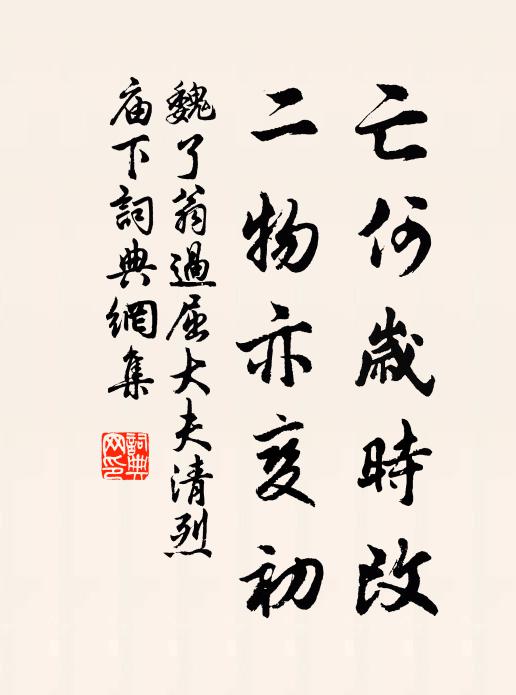 亡何歲時改
二物亦变初
魏了翁過屈大夫清烈
庙下詞典網集
詞典网印